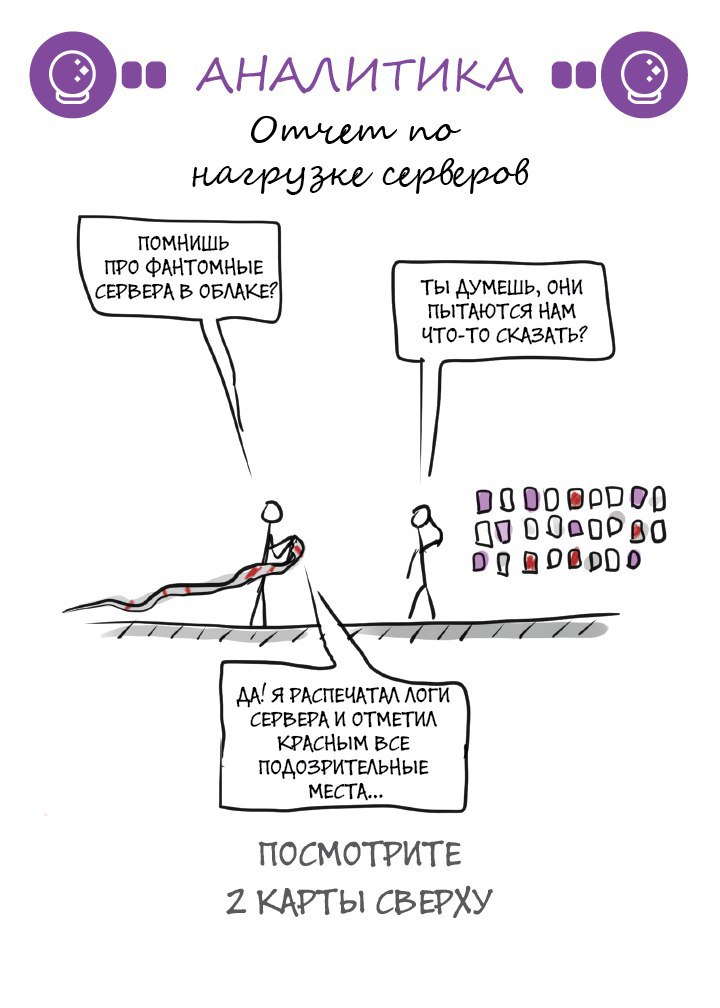 АНАЛИТИКА
Отчет по
нагрузке серверов
ПОМНИШЬ
ПРО ФАНТОМНЫЕ
СЕРВЕРА В ОБЛАКЕ?
ТЫ ДУМЕШЬ, ОНИ
ПЫТАЮТСЯ НАМ
ЧТО-ТО СКАЗАТЬ?
ДА! Я РАСПЕЧАТАЛ ЛОГИ
СЕРВЕРА И ОТМЕТИЛ
КРАСНЫМ ВСЕ
ПОДОЗРИТЕЛЬНЫЕ
МЕСТА...
ПОСМОТРИТЕ
2 КАРТЫ СВЕРХУ